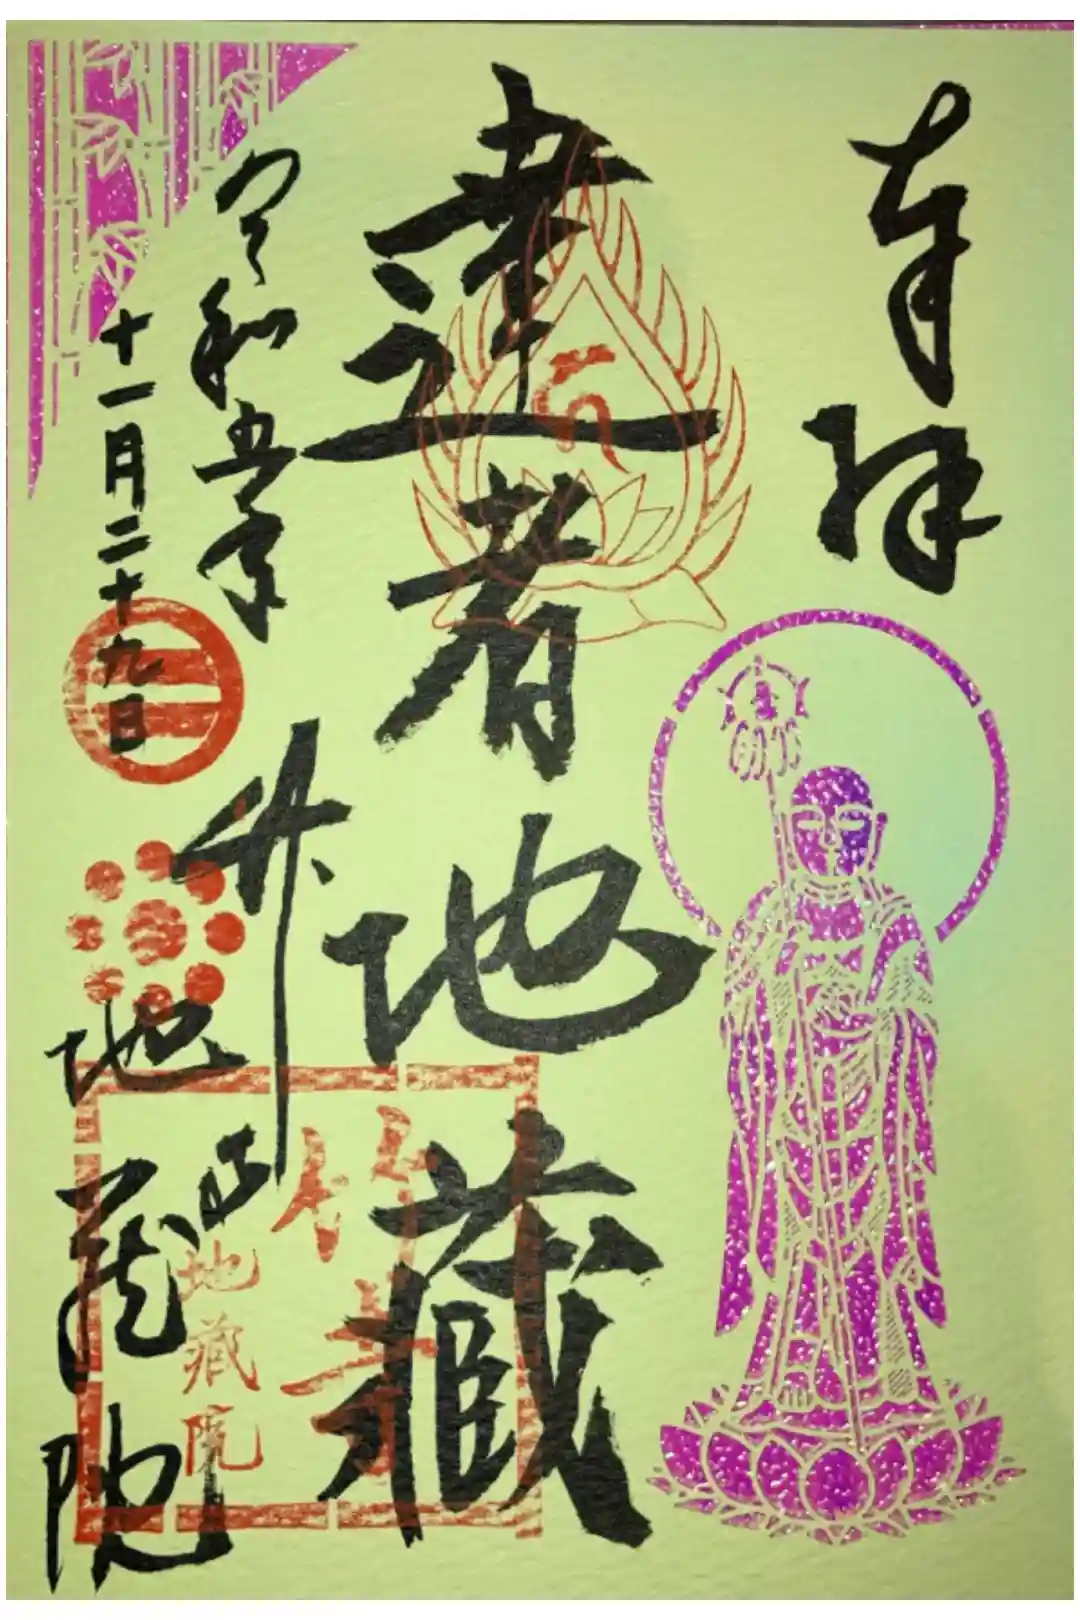 奉拝
達者地藏
令和五年
十一月二十九日
竹寺
地蔵院
竹寺
地藏院